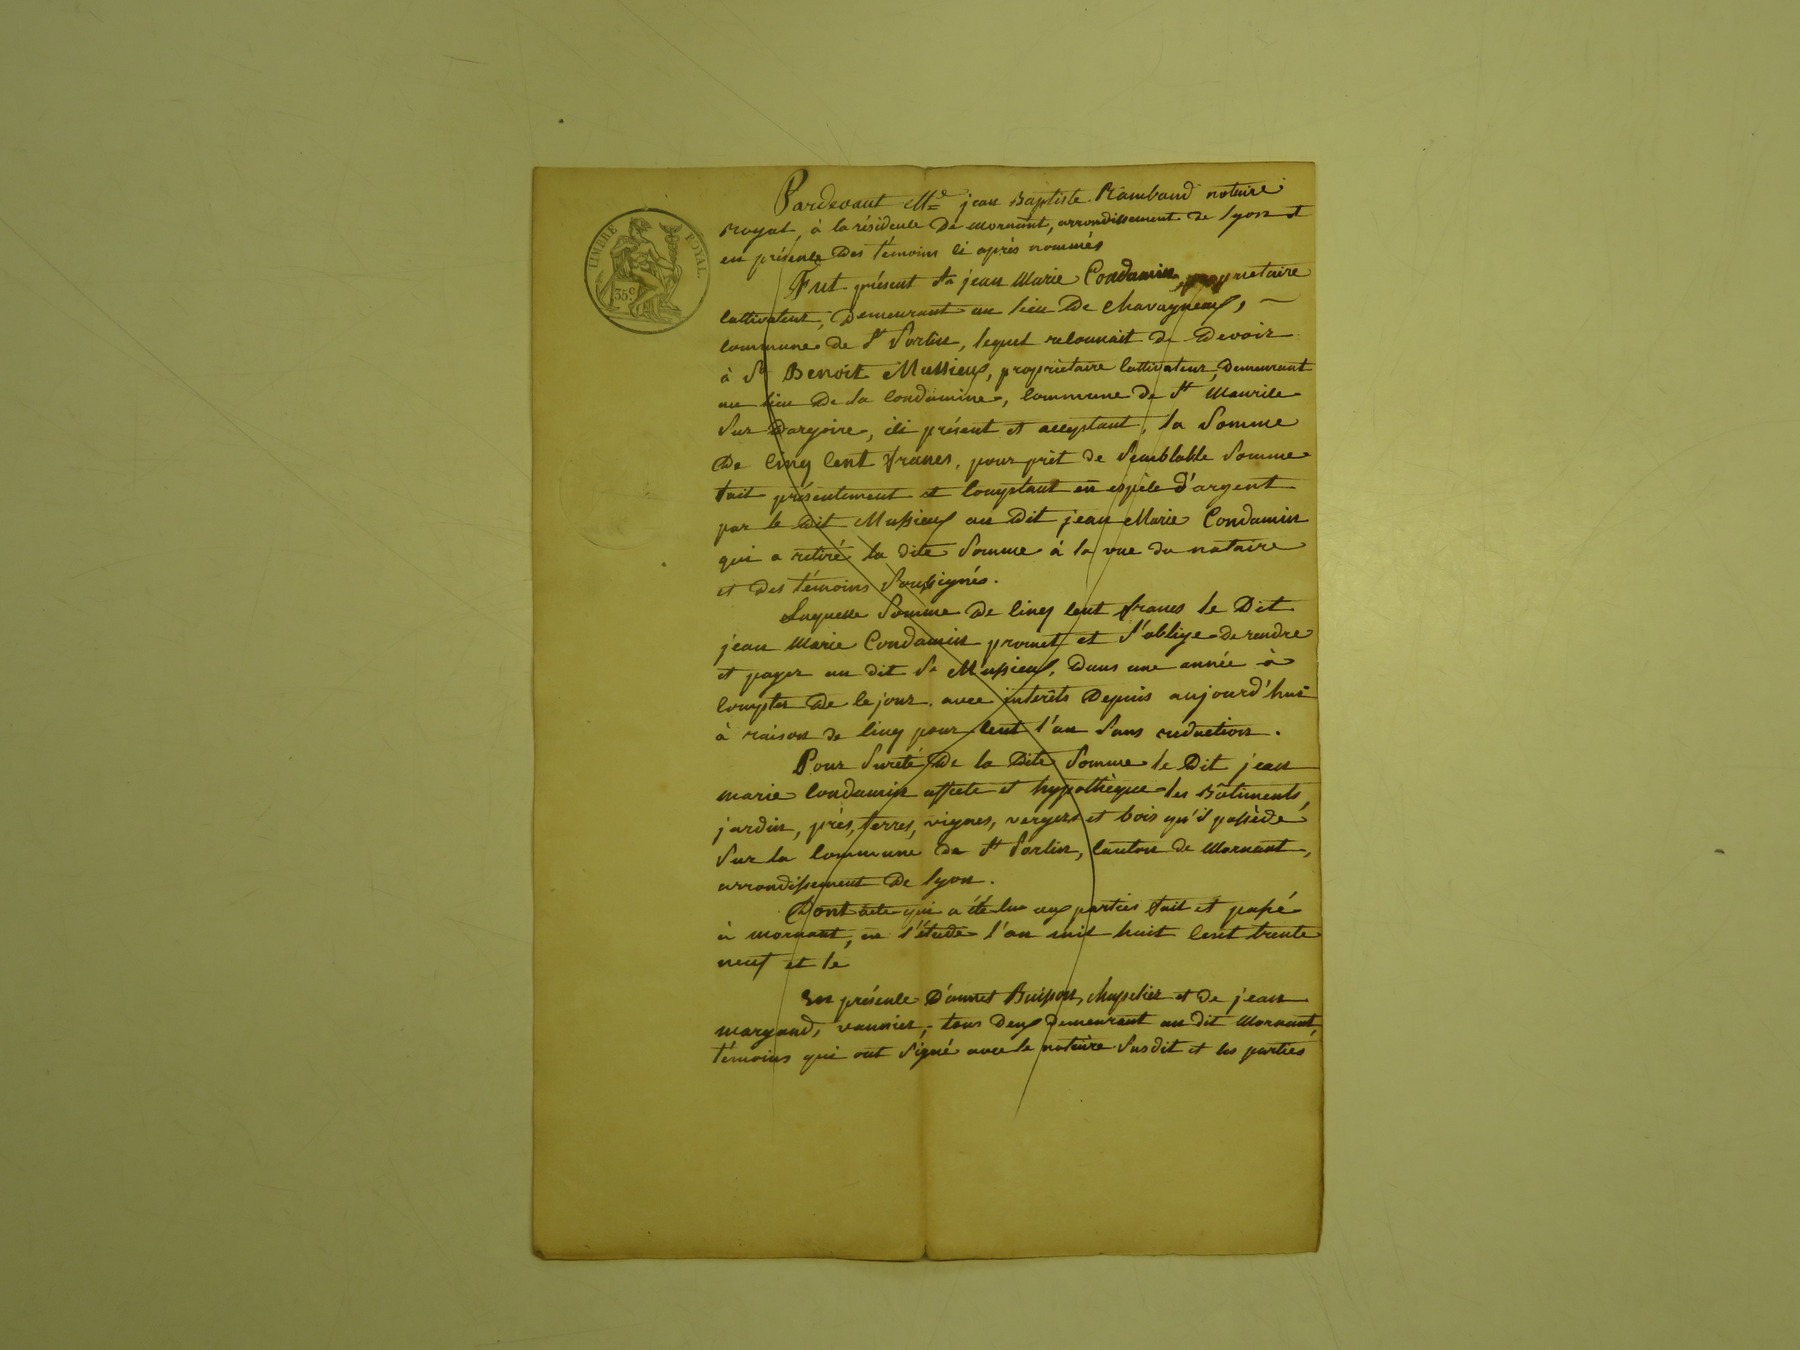 TIMBRE ROYAL.
35c
Pardevant Me. jean Baptiste Rambaud notaire
Royal, à la résidence De mornant, arrondissement de lyon et
en présence Des témoins ci après nommés
Fut présent Sr jean Marie Condamin, propriétaire
cultivateur, Demeurant au lieu De Chavagneux,
commune de St Sorlin, lequel reconnait de Devoir
à Sr Benoit Mussieux, propriétaire cultivateur, Demeurant
au lieu De la Condamine, commune de St Maurice
Sur Dargoire, ici présent et acceptant, la Somme
De Cinq Cent francs, pour prêt de Semblable Somme
fait présentement et comptant en espèce d'argent
par le Dit Mussieux au Dit jean Marie Condamin
qui a retiré la dite Somme à la vue du notaire
et Des témoins Soussignés.
Laquelle Somme De cinq cent francs le Dit
jean Marie Condamin promet et S'oblige de rendre
et payer au dit Sr Mussieux, Dans une année à
compter De ce jour, avec intérêts Depuis aujourd'hui
à raison de cinq pour cent l'an Sans réduction.
Pour Sureté De la Dite Somme le Dit jean
marie Condamin affecte et hypothèque les Bâtiments,
jardin, près, terres, vignes, vergers et bois qu'il possède
Sur la Commune de St Sorlin, Canton de Mornant,
arrondissement De lyon.
Dont acte qui a été lu aux parties fait et passé
à mornant, en l'étude l'an mil huit cent trente
neuf et le
En présence D'annet Buisson, chapelier et De jean
margand, vannier, tous Deux demeurant au dit Mornant,
témoins qui ont Signé avec le notaire Susdit et les parties